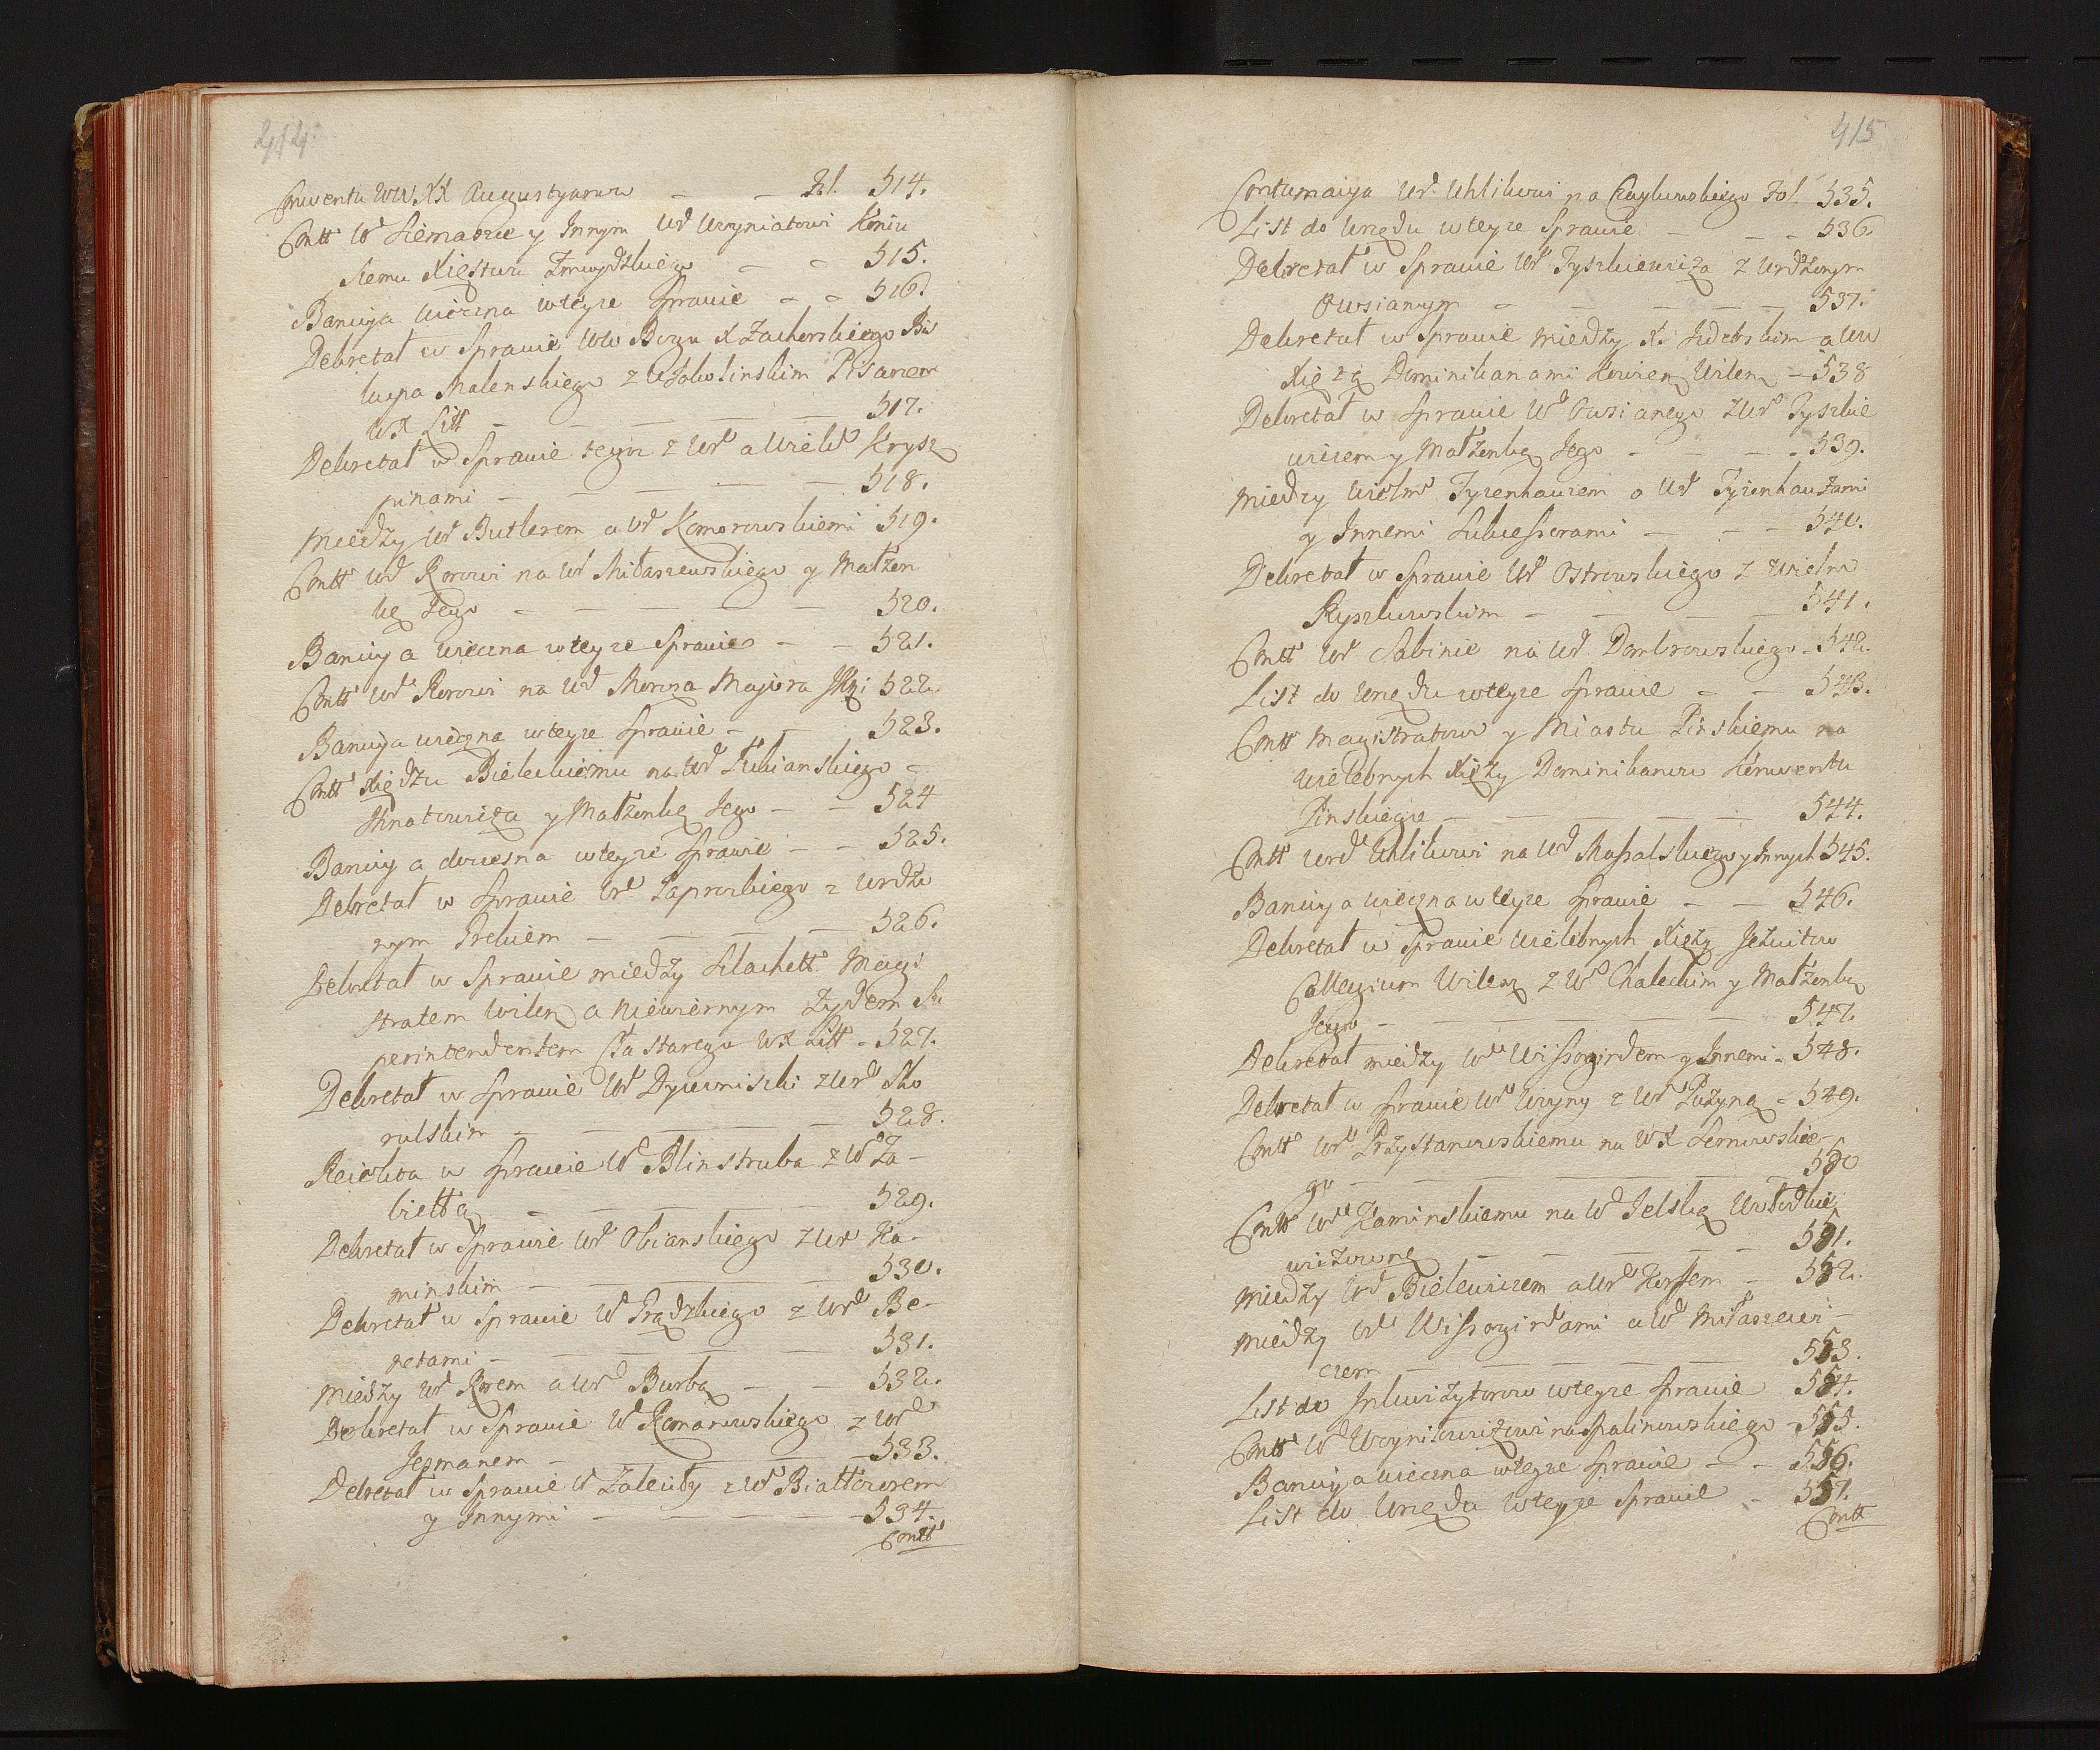 414.
Conventu WW. XX Augustyanow — — Fol. 514.
Contt Wd Siemaszce y Innym Wd Woyniatowi Koniu
Siemu Xięstwa Zmuydzkiego — — 515.
Banicya wieczna wteyze Sprawie — — 516.
Dekretał w Sprawie WW Bogu X Zacherskiego Bis
kupa Malenskiego z W Tokolinskim Pisarzem
WX Litt — — — 517.
Dekretał w Sprawie tegoz z Wd a Wielb Krysz
pinami — — — — 518.
Między Wd Butlerem a Wd Komorowskiemi 519.
Contt Wd Korowi na Wd Miłaszewskiego y Małżon
kę Jego — — — — 520.
Banicya wieczna wteyze Sprawie — — 521.
Contt Wd Korowi na Wd Moroza Majora JKMci 522.
Banicya wieczna wteyze Sprawie — — 523.
Contt Xiędzu Bieleckiemu na Wd Łukianskiego —
Hnatowicza y Małżonkę Jego — — 524
Banicya doczesna wteyze Sprawie — — 525.
Dekretał w Sprawie Wd Zaprozkiego z Urodzo
nym Prekiem — — — — 526.
Dekretał w Sprawie między Szlachett. Magi
stratem Wilen a Niewiernym Żydem Su
perintendentem Cła starego WX Litt — 527.
Dekretał w Sprawie Wd Dyrwniszki z Wd Sko
rulskim — — — — 528.
Reiekta w Sprawie Wd Blinstruba z Wd Za-
biełłą — — — — 529.
Dekretał w Sprawie Wd Obianskiego z Wd Ka-
minskim — — — — 530.
Dekretał w Sprawie Wd Prądzkiego z Wd Be-
netami — — — — 531.
Między Wd Korem a Wd Burbą — — 532.
Dekretał w Sprawie Wd Romanowskiego z Wd
Jesmanem — — — — 533.
Dekretał w Sprawie Wd Zaleuldy z Wd Białłozorem
y Innymi — — — — 534.
Contt
415
Contumacya Wd Uhlikowi na Czaykowskiego Fol. 535.
List do Urzędu wteyze Sprawie — — — 536.
Dekretał w Sprawie Wd Tyszkiewicza z Urodzonym
Owsianym — — — — 537.
Dekretał w Sprawie między X. Siedelskim a WW
Xiężą Dominikanami Konwen Wilen — 538
Dekretał w Sprawie Wd Owsianego z Wd Tyszkie
wiczem y Małżonką Jego — — — 539.
Między Wielm Tyzenhauzem a Wd Tyzenhauzami
y Innemi Sukcessorami — — — 540.
Dekretał w Sprawie Wd Ostrowskiego z Wielm
Ryszkowskim — — — — 541.
Contt Wd Sabinie na Wd Dombrowskiego — 542.
List do Urzędu wteyze Sprawie — — 543.
Contt Magistratowi y Miastu Pinskiemu na
Wielebnych Xięży Dominikanow Konwentu
Pinskiego — — — — — 544.
Contt Wd Uhlikowi na Wd Massalskiego y Innych 545.
Banicya wieczna wteyze Sprawie — — 546.
Dekretał w Sprawie Wielebnych Xięży Jezuitow
Collegium Wilen z Wd Chaleckim y Małżonką
Jego — — — — — 547.
Dekretał między Wd Wissogirdem y Innemi — 548.
Dekretał w Sprawie Wd Woyny z Wd Puzyną — 549.
Contt Wd Przystanowskiemu na WX Sernowskie-
go — — — — — 550
Contt Wd Kaminskiemu na Wd Jelską Wołodkie
wiczowną — — — — — 551.
Między Wd Bielewiczem a Wd Korssem — 552.
Między Wd Wissogirdami a Wd Miłaszewi-
czem — — — — — 553.
List do Inkwizytorow wteyze Sprawie 554.
Contt Wd Woyniłowiczowi na Spalinowskiego — 555.
Banicya wieczna wteyze Sprawie — — 556.
List do Urzędu wteyze Sprawie — 557.
Contt